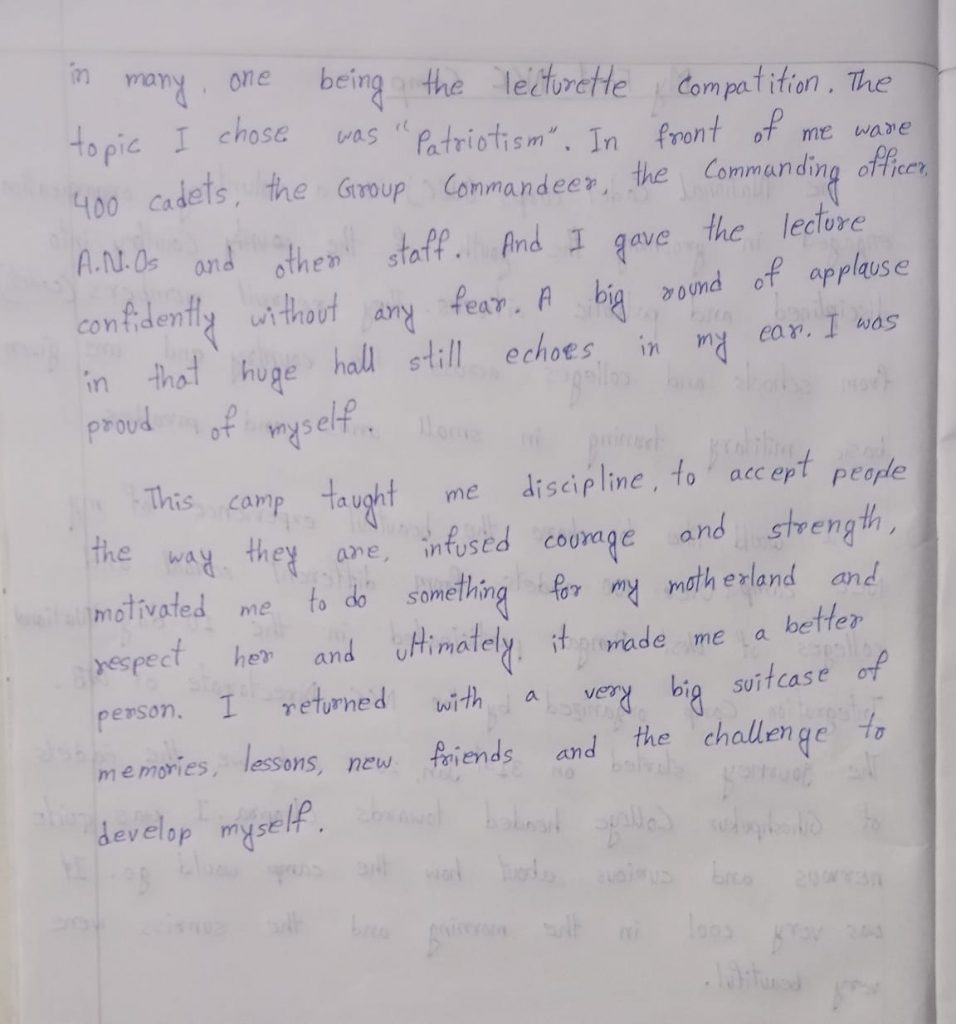 in many, one being the lecturette Compatition. The
topic I chose was "Patriotism". In front of me ware
400 cadets, the Group Commandeer, the Commanding officer,
A.N.Os and other staff. And I gave the lecture
confidently without any fear. A big round of applause
in that huge hall still echoes in my ear. I was
proud of myself.
This camp taught me discipline, to accept people
the way they are, infused courage and strength,
motivated me to do something for my motherland and
respect her and ultimately, it made me a better
person. I returned with a very big suitcase of
memories, lessons, new friends and the challenge to
develop myself.